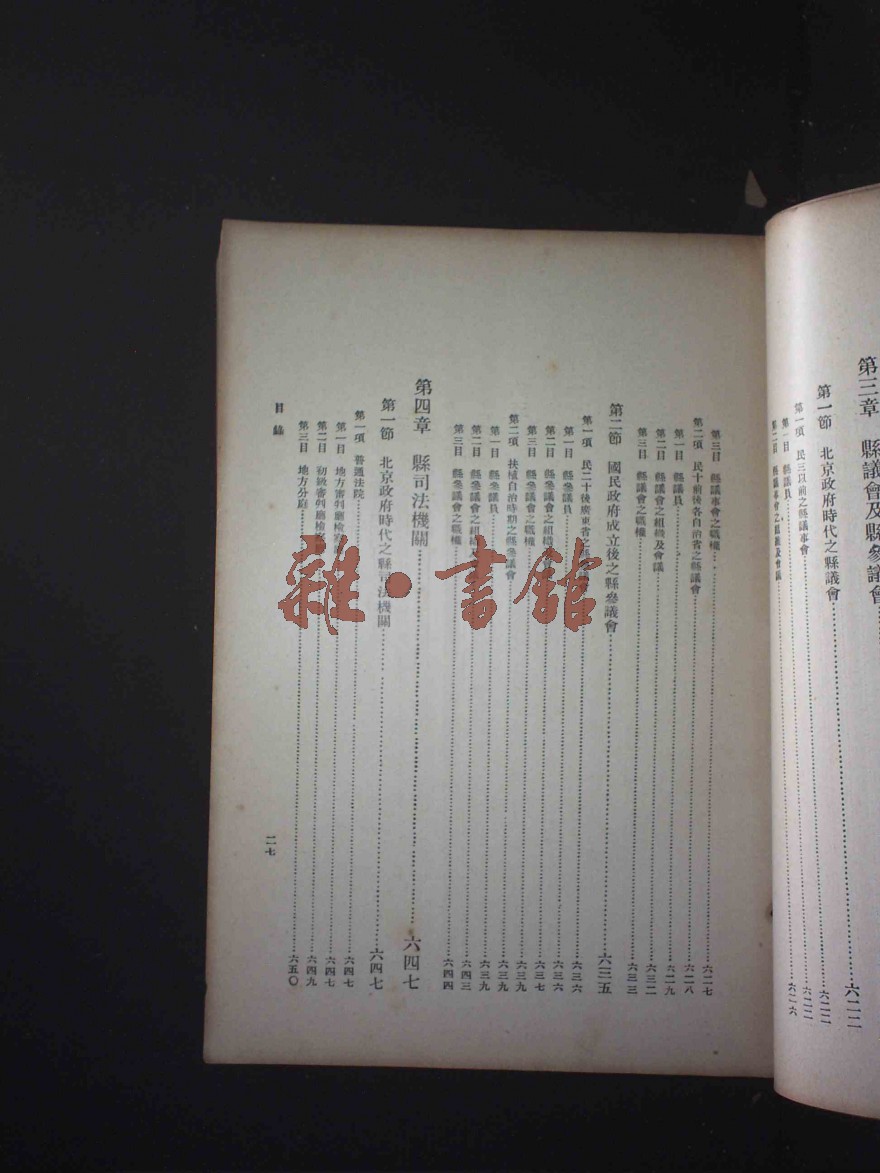 第三章 縣議會及縣參議會……六二二
第一節 北京政府時代之縣議會……六二二
第一項 民三以前之縣議事會……六二二
第一目 縣議員
第二目 縣議事會之組織及會議……六二六
第三目 縣議事會之職權……六二七
第二項 民十前後各自治省之縣議會……六二八
第一目 縣議員……六二九
第二目 縣議會之組織及會議……六三二
第三目 縣議會之職權……六三三
第二節 國民政府成立後之縣參議會……六三五
第一項 民二十後廣東省之縣……六三六
第一目 縣參議員……六三六
第二目 縣參議會之組織……六三七
第三目 縣參議會之職權……六三九
第二項 扶植自治時期之縣參議會……六三九
第一目 縣參議員……六三九
第二目 縣參議會之組織及……六四三
第三目 縣參議會之職權……六四四
第四章 縣司法機關……六四七
第一節 北京政府時代之縣司法機關……六四七
第一項 普通法院……六四七
第一目 地方審判廳檢察……六四七
第二目 初級審判廳檢察……六四九
第三目 地方分庭……六五〇
目錄
二七
雜·書館